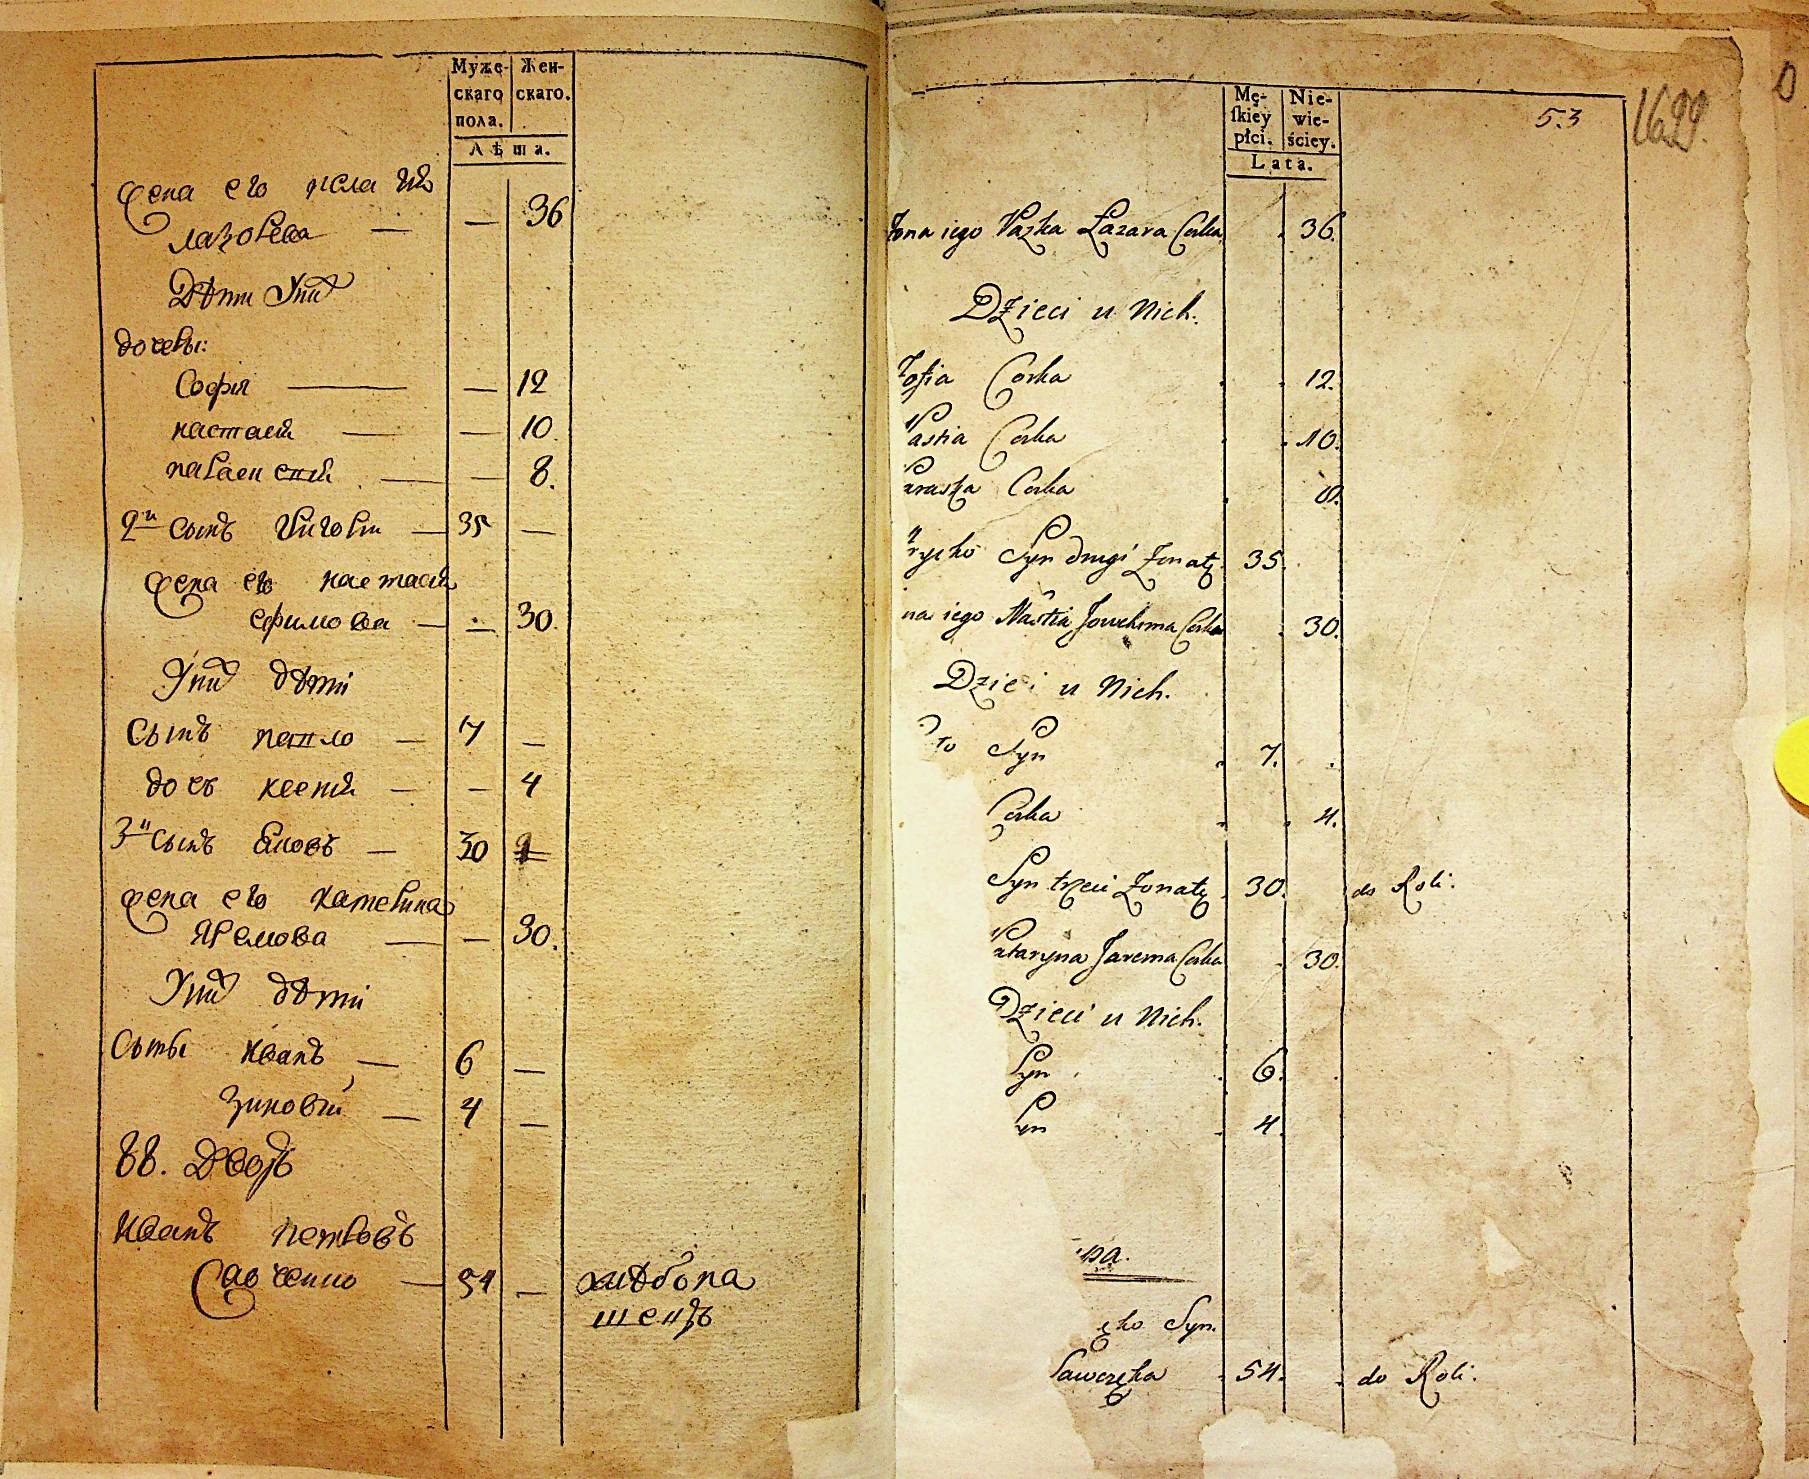 Муже-
скаго
пола.
Жен-
скаго.
Лѣта.
жена его
Лазорева — — 36
Дѣти У них
дочеры:
Софія — — 12
настасія — — 10.
параскевія — — 8.
2й сынъ Григорій — 35 —
жена его настасія
Ефимова — — 30.
У них дѣти
Сынъ павло — 7 —
дочь ксенія — — 4
3й сынъ — 30
жена его катерина
Яремова — — 30.
У них дѣти
Сыны Иванъ — 6 —
Зиновій — 4 —
88. Дворъ
Иванъ петровъ
Савченко — 54 — хлѣбопа
шецъ
Mę-
skiey
płci.
Nie-
wie-
ściey.
Lata.
53
1699.
Żona iego Pazka Łazara Corka 36.
Dzieci u Nich.
Zofia Corka 12.
Nastia Corka 10.
araska Corka 8.
rycko Syn drugi Żonaty 35.
na iego Nastia Jowchima Corka 30.
Dzieci u Nich.
ło Syn 7.
Corka 4.
Syn trzeci Żonaty 30. do Roli.
Kataryna Jarema Corka 30.
Dzieci u Nich.
Syn 6.
Syn 4.
pa.
Syn.
Sawczęka 54. do Roli.